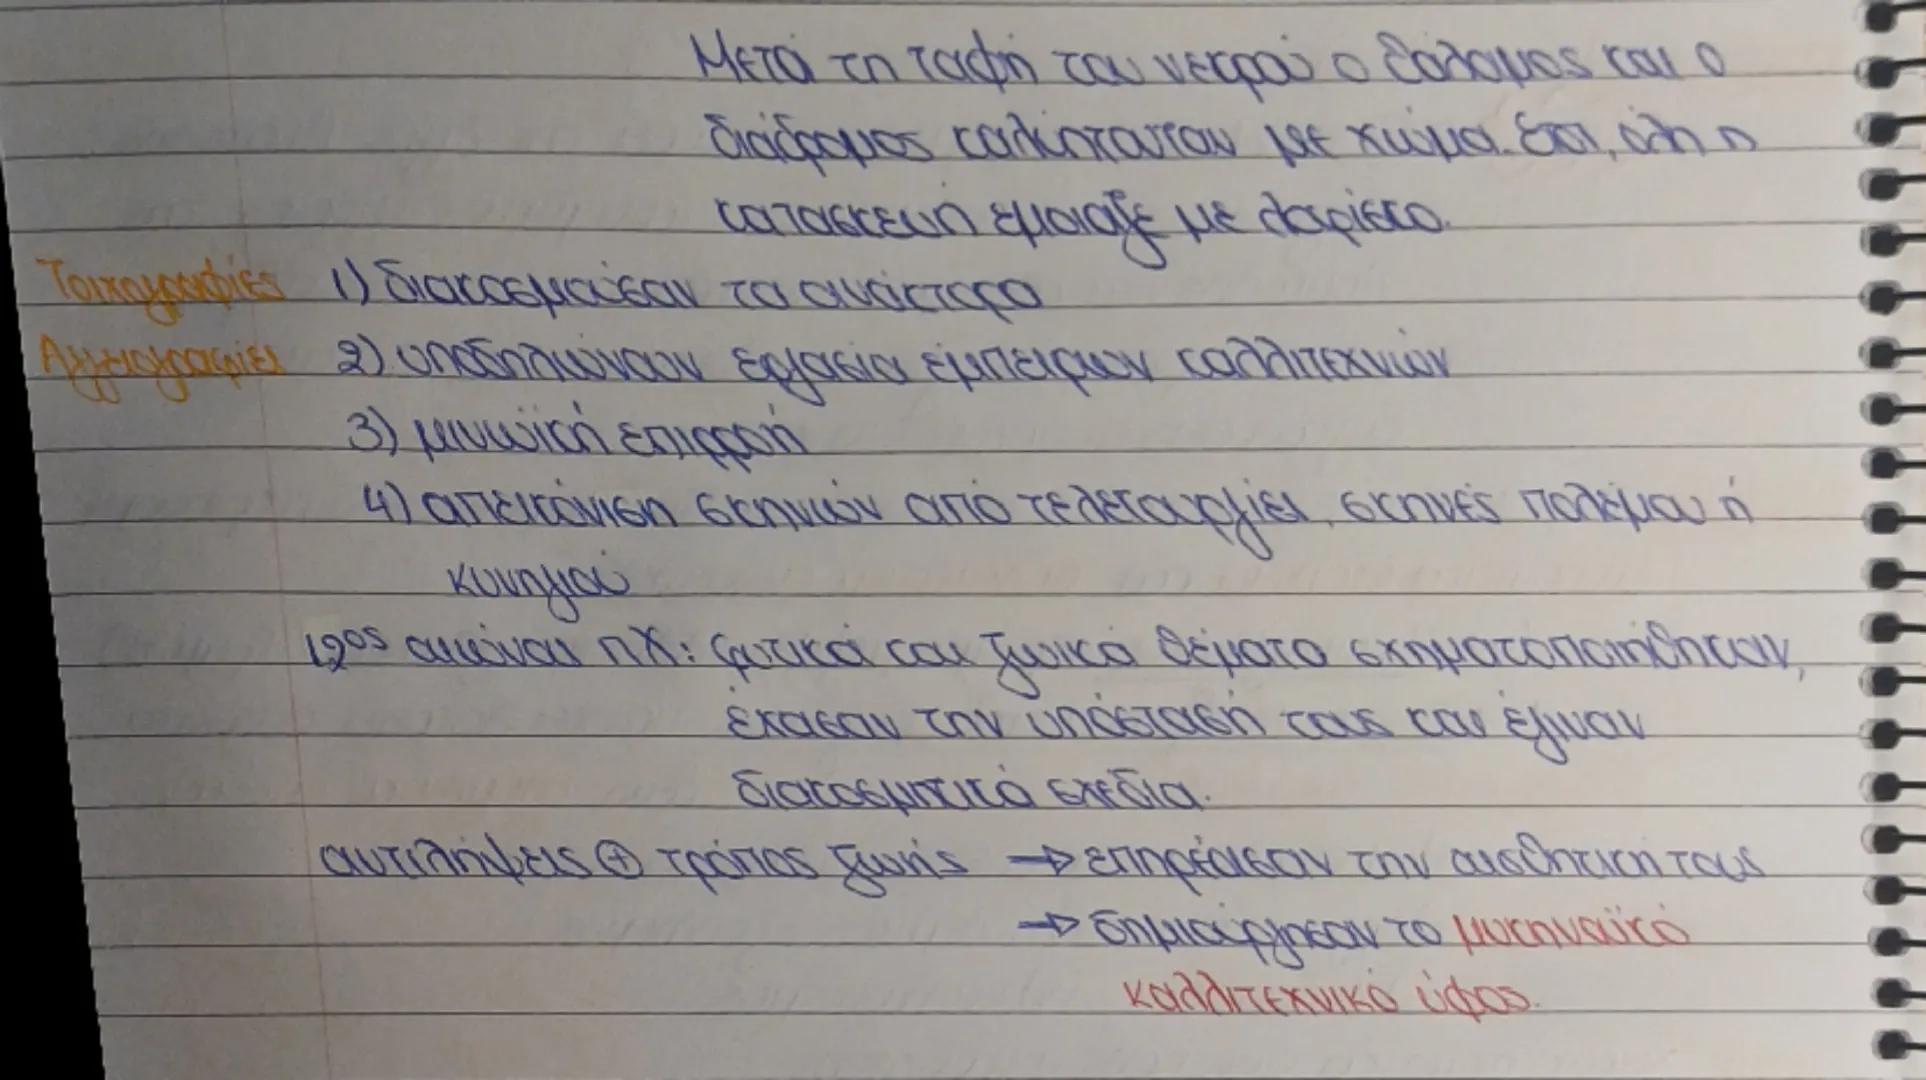 Μετά τη ταφή του νεκρού ο θάλαμος και ο
διάδρομος καλύπτονταν με χώμα. Έτσι, όλη η
κατασκευή έμοιαζε με λοφίσκο.
Τοιχογραφίες 1) διακοσμούσαν τα ανάκτορα
Αγγειογραφίες 2) υποδηλώνουν εργασία έμπειρων καλλιτεχνών
3) μινωϊκή επιρροή
4) απεικόνιση σκηνών από τελετουργίες, σκηνές πολέμου ή
κυνηγιού
12ος αιώνας πΧ: φυτικά και ζωικά θέματα σχηματοποιήθηκαν,
έχασαν την υπόστασή τους και έγιναν
διακοσμητικά σχέδια.
αντιλήψεις ⊕ τρόπος ζωής → επηρέασαν την αισθητική τους
→ δημιούργησαν το μυκηναϊκό
καλλιτεχνικό ύφος.